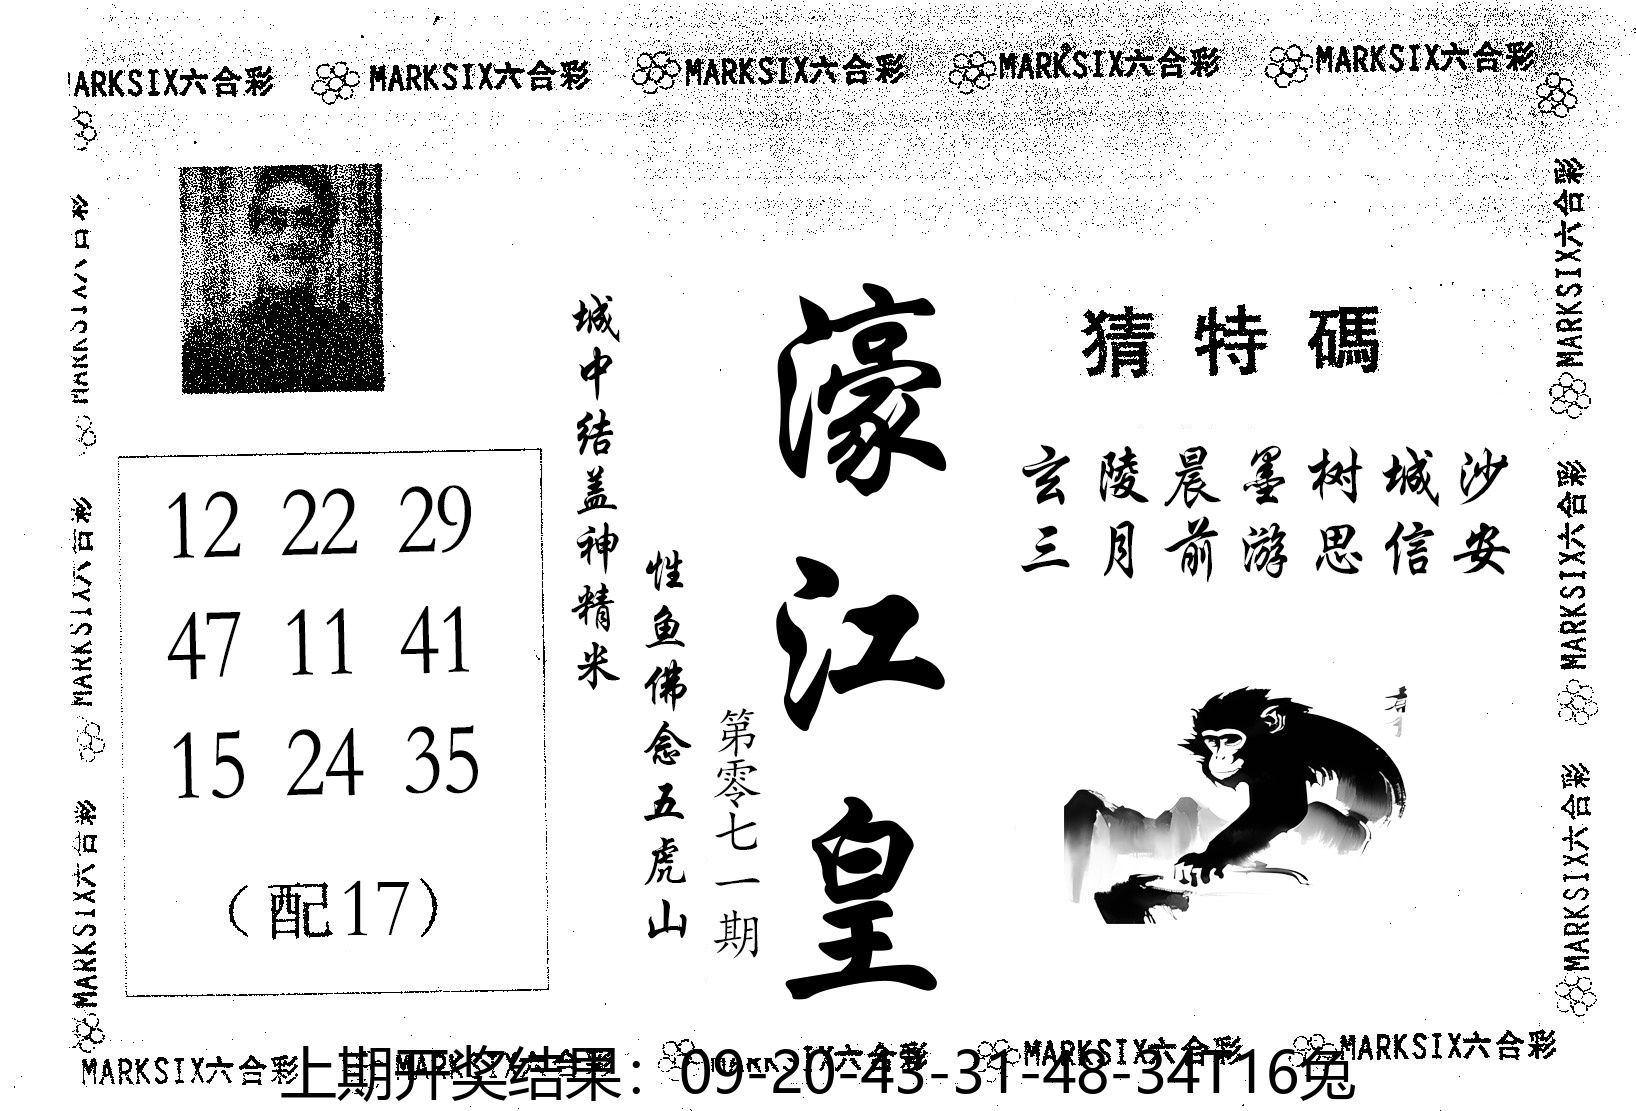 MARKSIX六合彩 MARKSIX六合彩 MARKSIX六合彩 MARKSIX六合彩 MARKSIX六合彩
MARKSIX六合彩
MARKSIX六合彩
MARKSIX六合彩
12 22 29
47 11 41
15 24 35
（配17）
城中结盖神精米
性鱼佛念五虎山
第零七一期
濠江皇
猜特碼
玄陵晨墨树城沙
三月前游思信安
MARKSIX六合彩
MARKSIX六合彩
MARKSIX六合彩
MARKSIX六合彩 MARKSIX六合彩 MARKSIX六合彩 MARKSIX六合彩 MARKSIX六合彩
上期开奖结果：09-20-43-31-48-34T16兔